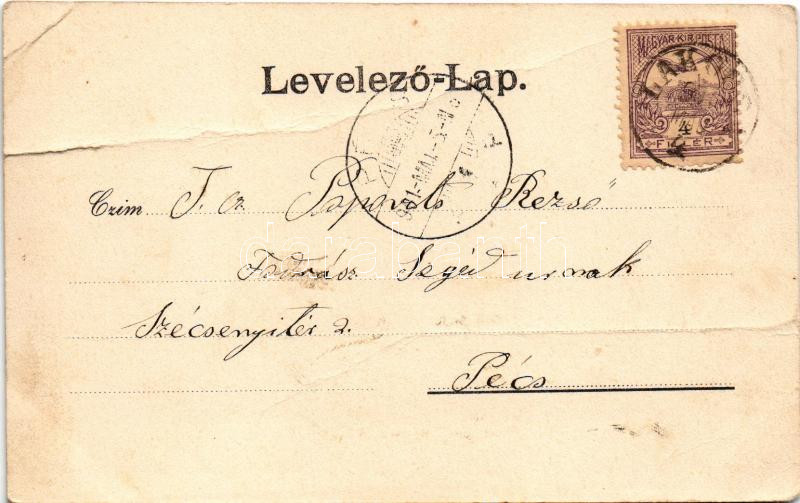 Levelező-Lap.
MAGYAR KIR. POSTA
4
FILLÉR
PÉCS
Czim T. cz. Popovits Rezső
Fodrász Segéd urnak
Szécsenyitér 2.
Pécs
darabanth